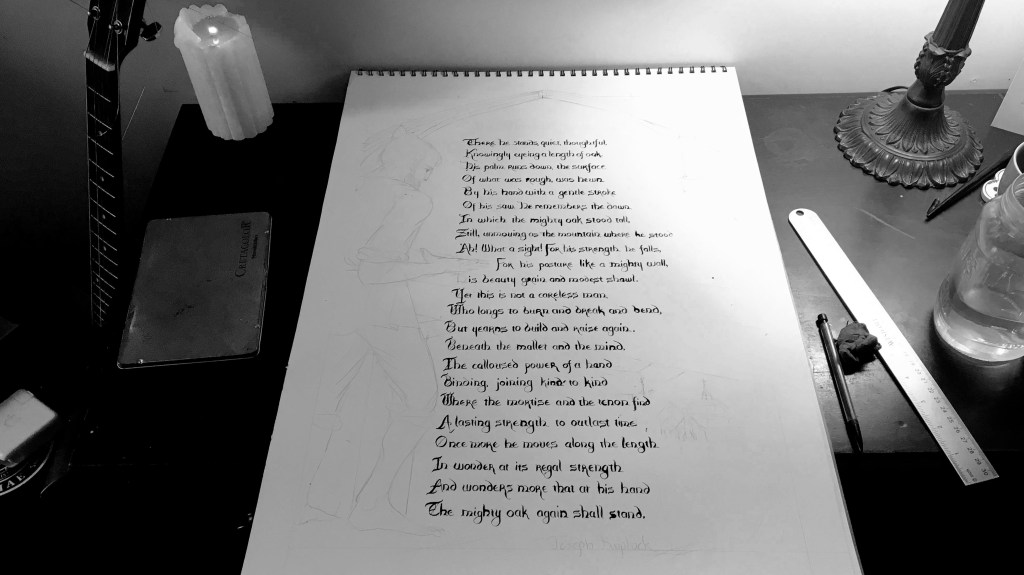 There he stands, quiet, thoughtful
Knowingly eyeing a length of oak
His palm runs down the surface
Of what was rough, was hewn
By his hand with a gentle stroke
Of his saw. He remembers the dawn
In which the mighty oak stood tall,
Still, unmoving as the mountain where he stood
Ah! What a sight! For his strength he falls,
For his pasture like a mighty wall,
is beauty grain and modest shawl.
Yet this is not a careless man,
Who longs to burn and break and bend,
But yearns to build and raise again..
Beneath the mallet and the mind.
The calloused power of a hand
Binding, joining kind to kind
Where the mortise and the tenon find
A lasting strength to outlast time
Once more he moves along the length
In wonder at its regal strength
And wonders more that at his hand
The mighty oak again shall stand.
Joseph